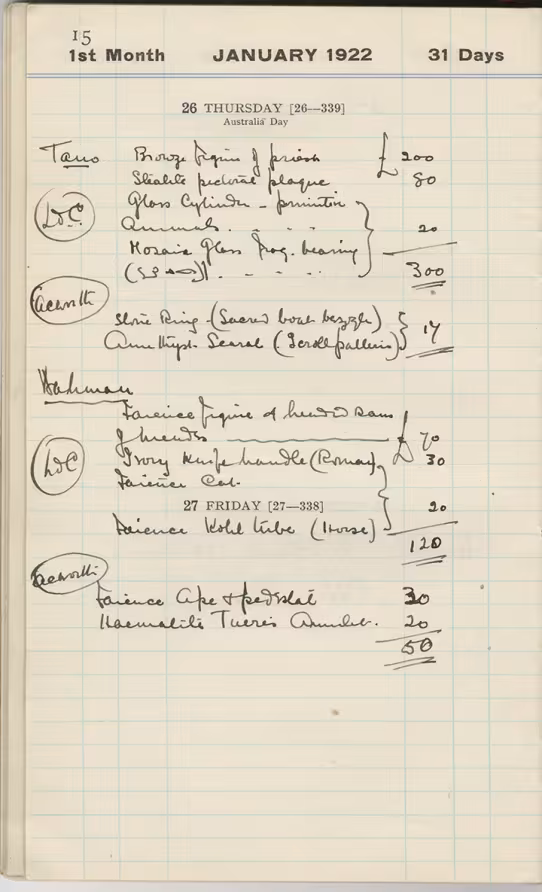 15
1st Month JANUARY 1922 31 Days
26 THURSDAY [26—339]
Australia Day
Tano Bronze figure of priest £ 200
Steatite pectoral plaque 80
LdC Glass Cylinder -
Animals. - - - 20
Mosaic Glass frag. bearing
300
Acworth
Stone Ring - (Sacred boat bezzle)
Amethyst Scarab (Scroll pattern) 17
Faience figure of headed ram
of mendes £ 70
LdC Ivory Knife handle (Roman) 30
Faience Cat.
27 FRIDAY [27—338] 20
Faience Kohl tube (Horse)
120
Acworth
Faience Ape & pedestal 30
Haematite Tueris Amulet. 20
50